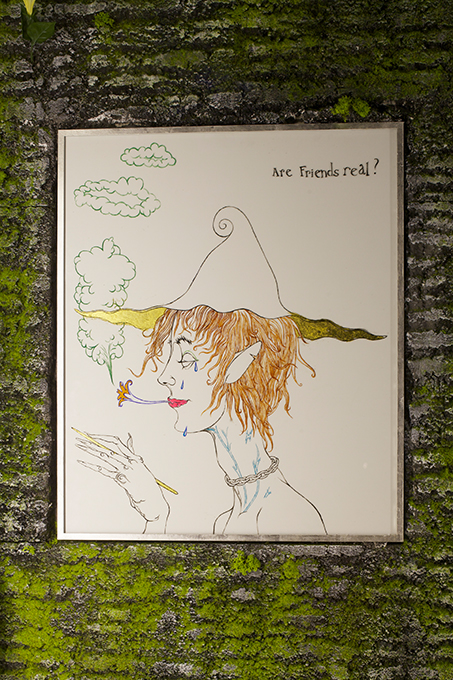 Are Friends real?